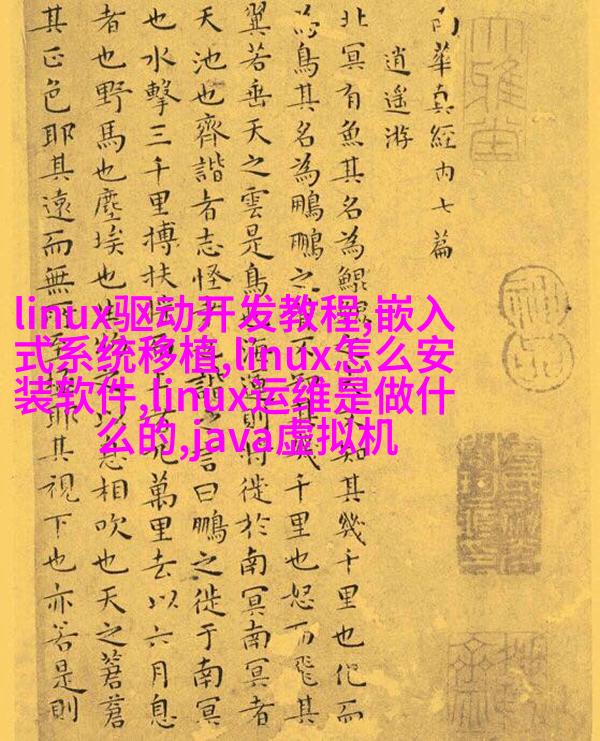 南華真經內七篇
逍遙游
北冥有魚其名為鯤鯤知其幾千里也化而
為鳥其名為鵬鵬之不知其幾千里也怒而飛其
翼若垂天之雲是鳥也海運則將徙於南冥南冥者
天池也齊諧者志怪者也諧之言曰鵬之徙于南冥
也水擊三千里摶扶搖九萬里去以六月息
者也野馬也塵埃也以息相吹也天之蒼蒼
其正色耶其遠而無所至極耶其視下也亦若是則
linux驱动开发教程,嵌入
式系统移植,linux怎么安
装软件,linux运维是做什
么的,java虚拟机